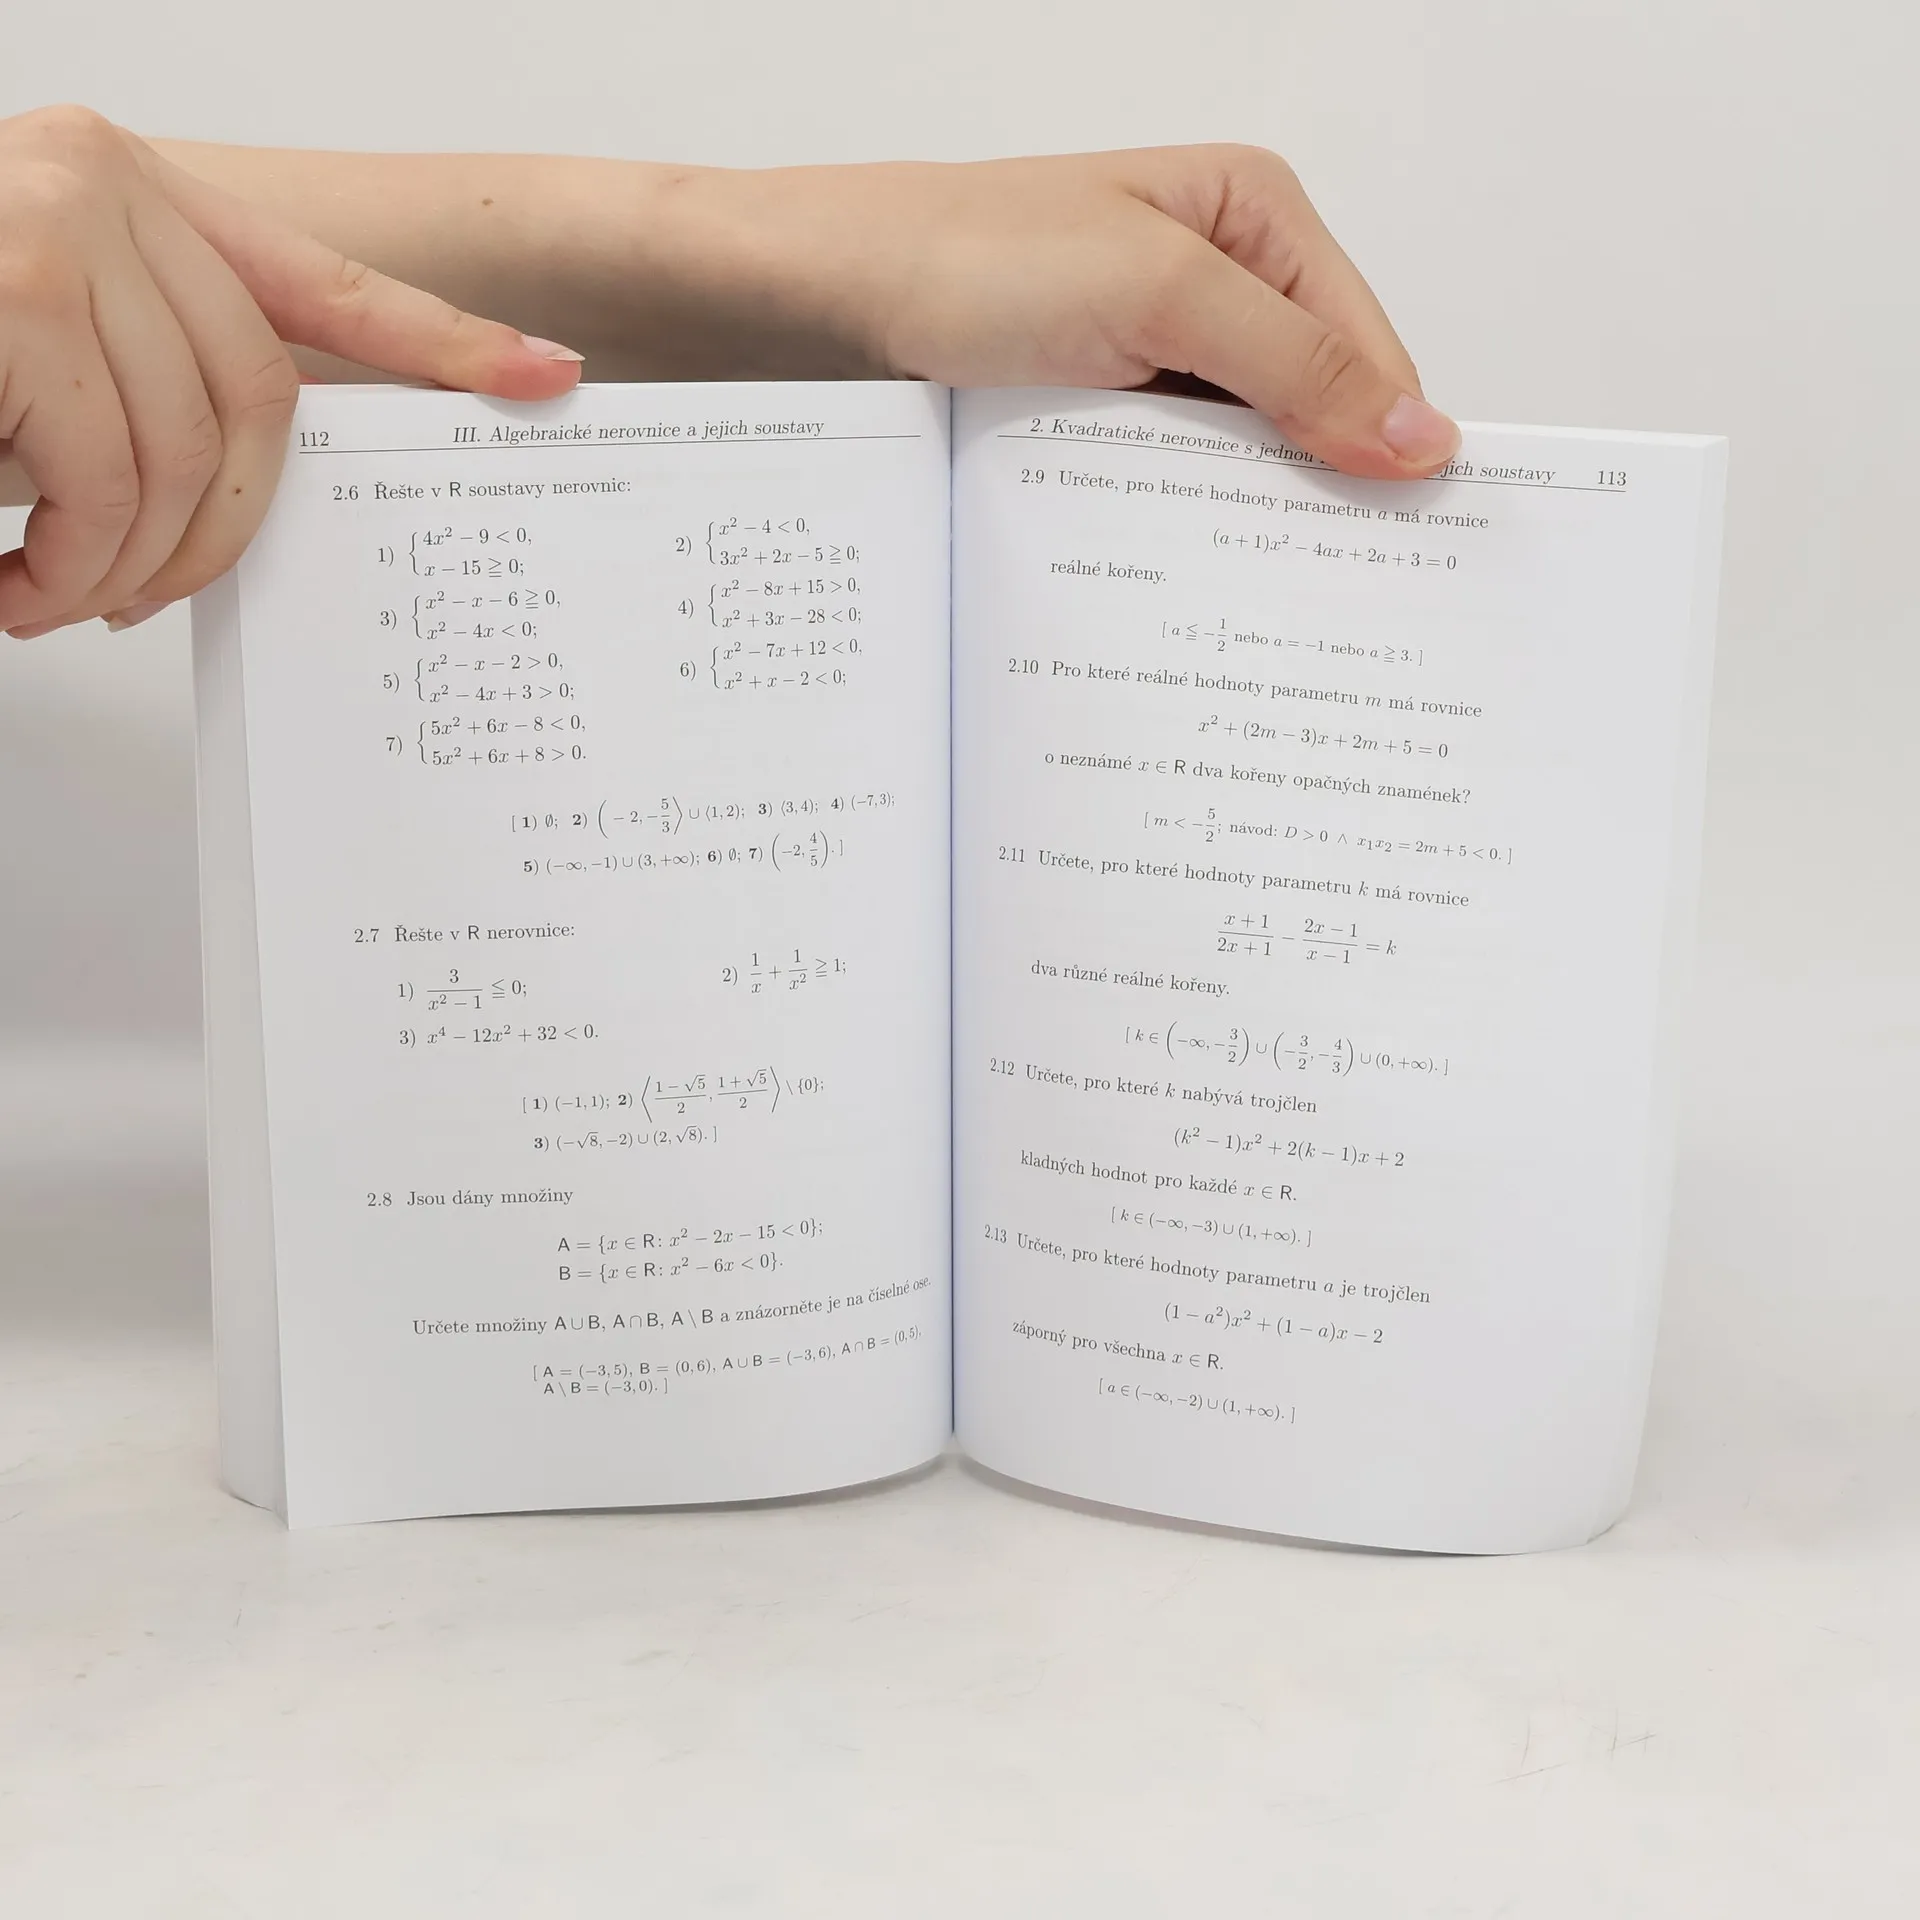 112 III. Algebraické nerovnice a jejich soustavy
2.6 Řešte v R soustavy nerovnic:
1) { 4x² − 9 < 0, x − 15 ≧ 0; 2) { x² − 4 < 0, 3x² + 2x − 5 ≧ 0;
3) { x² − x − 6 ≧ 0, x² − 4x < 0; 4) { x² − 8x + 15 > 0, x² + 3x − 28 < 0;
5) { x² − x − 2 > 0, x² − 4x + 3 > 0; 6) { x² − 7x + 12 < 0, x² + x − 2 < 0;
7) { 5x² + 6x − 8 < 0, 5x² + 6x + 8 > 0.
[ 1) ∅; 2) (−2, −5/3⟩ ∪ ⟨1, 2); 3) ⟨3, 4); 4) (−7, 3);
5) (−∞, −1) ∪ (3, +∞); 6) ∅; 7) (−2, 4/5). ]
2.7 Řešte v R nerovnice:
1) 3/(x² − 1) ≦ 0; 2) 1/x + 1/x² ≧ 1;
3) x⁴ − 12x² + 32 < 0.
[ 1) (−1, 1); 2) ⟨(1 − √5)/2, (1 + √5)/2⟩ \ {0};
3) (−√8, −2) ∪ (2, √8). ]
2.8 Jsou dány množiny
A = {x ∈ R: x² − 2x − 15 < 0};
B = {x ∈ R: x² − 6x < 0}.
Určete množiny A ∪ B, A ∩ B, A \ B a znázorněte je na číselné ose.
[ A = (−3, 5), B = (0, 6), A ∪ B = (−3, 6), A ∩ B = (0, 5),
A \ B = (−3, 0⟩. ]
2. Kvadratické nerovnice s jednou soustavy 113
2.9 Určete, pro které hodnoty parametru a má rovnice
(a + 1)x² − 4ax + 2a + 3 = 0
reálné kořeny.
[ a ≦ −1/2 nebo a = −1 nebo a ≧ 3. ]
2.10 Pro které reálné hodnoty parametru m má rovnice
x² + (2m − 3)x + 2m + 5 = 0
o neznámé x ∈ R dva kořeny opačných znamének?
[ m < −5/2; návod: D > 0 ∧ x₁x₂ = 2m + 5 < 0. ]
2.11 Určete, pro které hodnoty parametru k má rovnice
(x + 1)/(2x + 1) − (2x − 1)/(x − 1) = k
dva různé reálné kořeny.
[ k ∈ (−∞, −3/2) ∪ (−3/2, −4/3) ∪ (0, +∞). ]
2.12 Určete, pro které k nabývá trojčlen
(k² − 1)x² + 2(k − 1)x + 2
kladných hodnot pro každé x ∈ R.
[ k ∈ (−∞, −3) ∪ (1, +∞). ]
2.13 Určete, pro které hodnoty parametru a je trojčlen
(1 − a²)x² + (1 − a)x − 2
záporný pro všechna x ∈ R.
[ a ∈ (−∞, −2) ∪ (1, +∞). ]